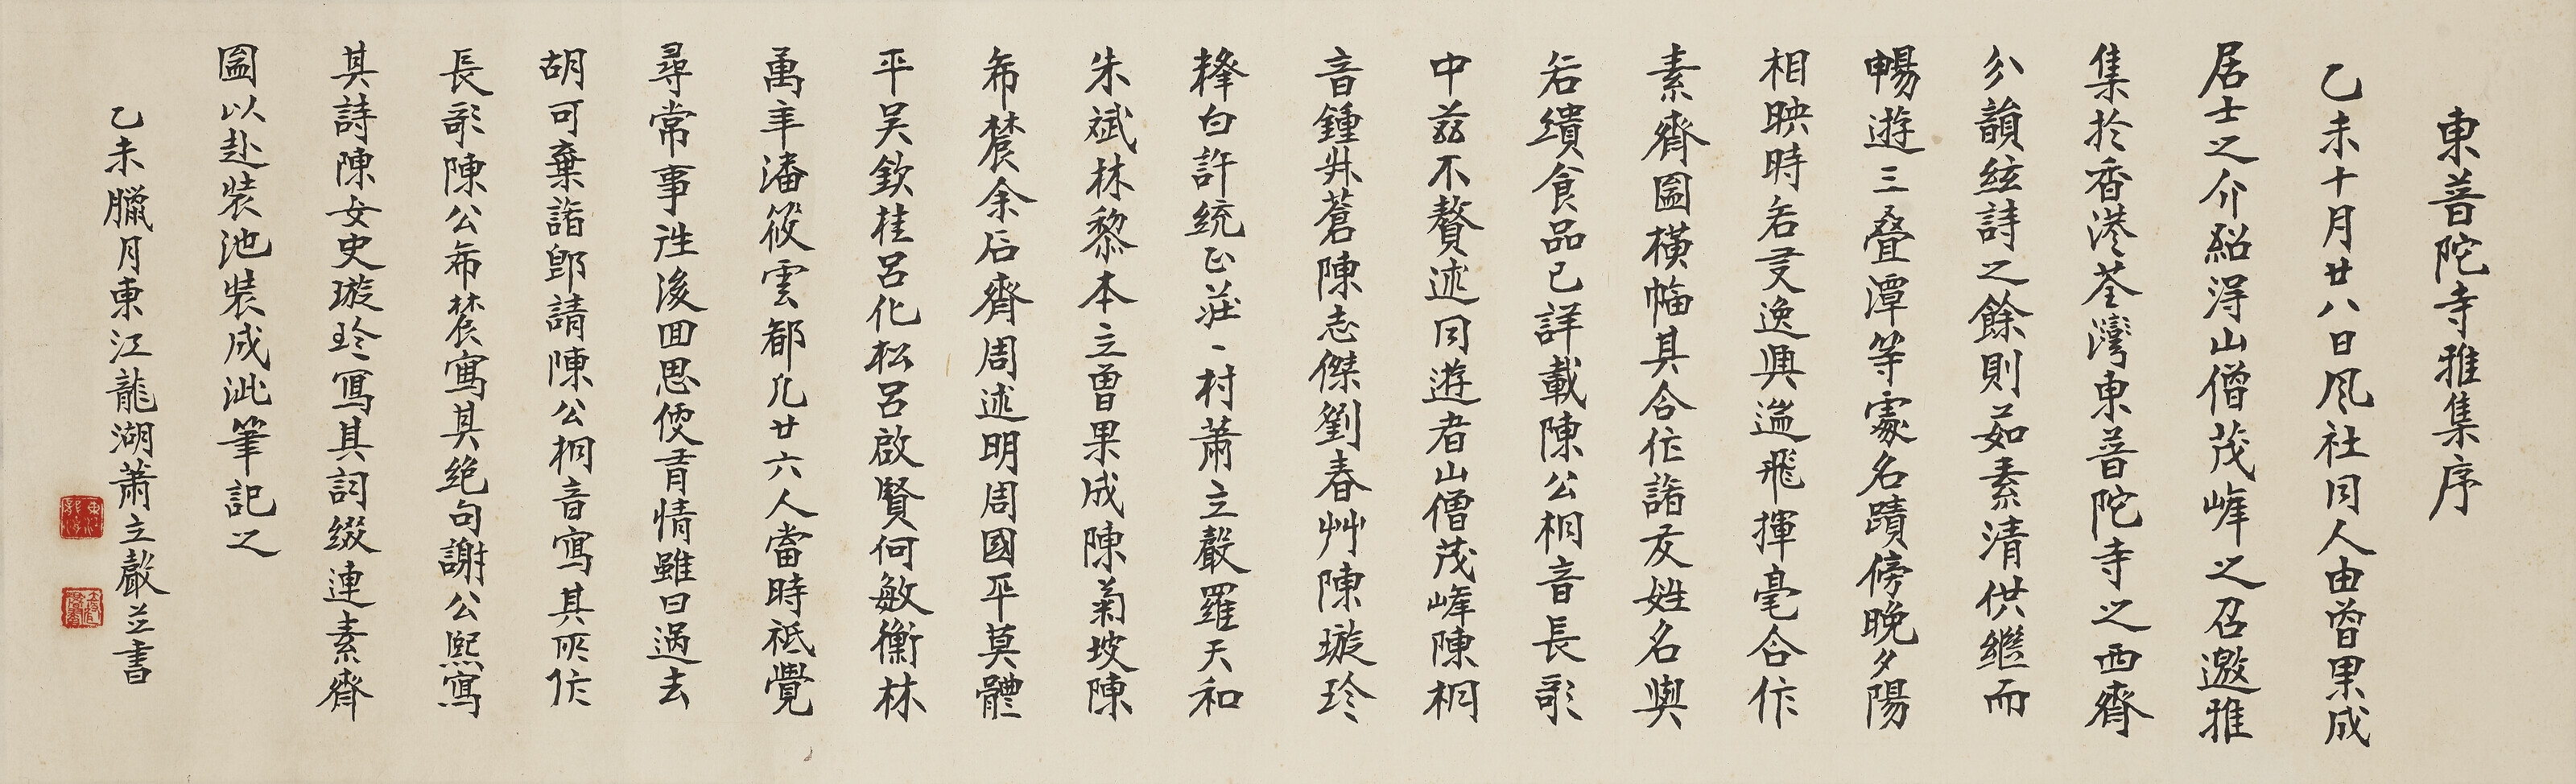 東普陀寺雅集序
乙未十月廿八日風社同人由曾果成
居士之介紹淂山僧茂峰之召邀雅
集於香港荃灣東普陀寺之西齋
分韻絃詩之餘則茹素清供繼而
暢遊三叠潭等處名蹟傍晚夕陽
相映時若爻逸興遄飛揮毫合作
素齋圖橫幅其合作諸友姓名與
若繢食品已詳載陳公桐音長歌
中茲不贅述同遊者山僧茂峰陳桐
音鍾舛蒼陳志傑劉春艸陳璇珍
擇白許統正莊一村蕭立聲羅天和
朱斌林黎本立曾果成陳菊坡陳
布農余后齋周述明周國平莫體
平吴欽桂呂化松呂啟賢何敏衡林
萬年潘筱雲都凡廿六人當時祗覺
尋常事徃後回思便有情雖曰過去
胡可棄諸卽請陳公桐音寫其所作
長歌陳公布農寫其绝句謝公熙寫
其詩陳女史璇珍寫其詞綴連素齋
圖以赴裝池裝成泚筆記之
乙未臘月東江龍湖蕭立聲並書